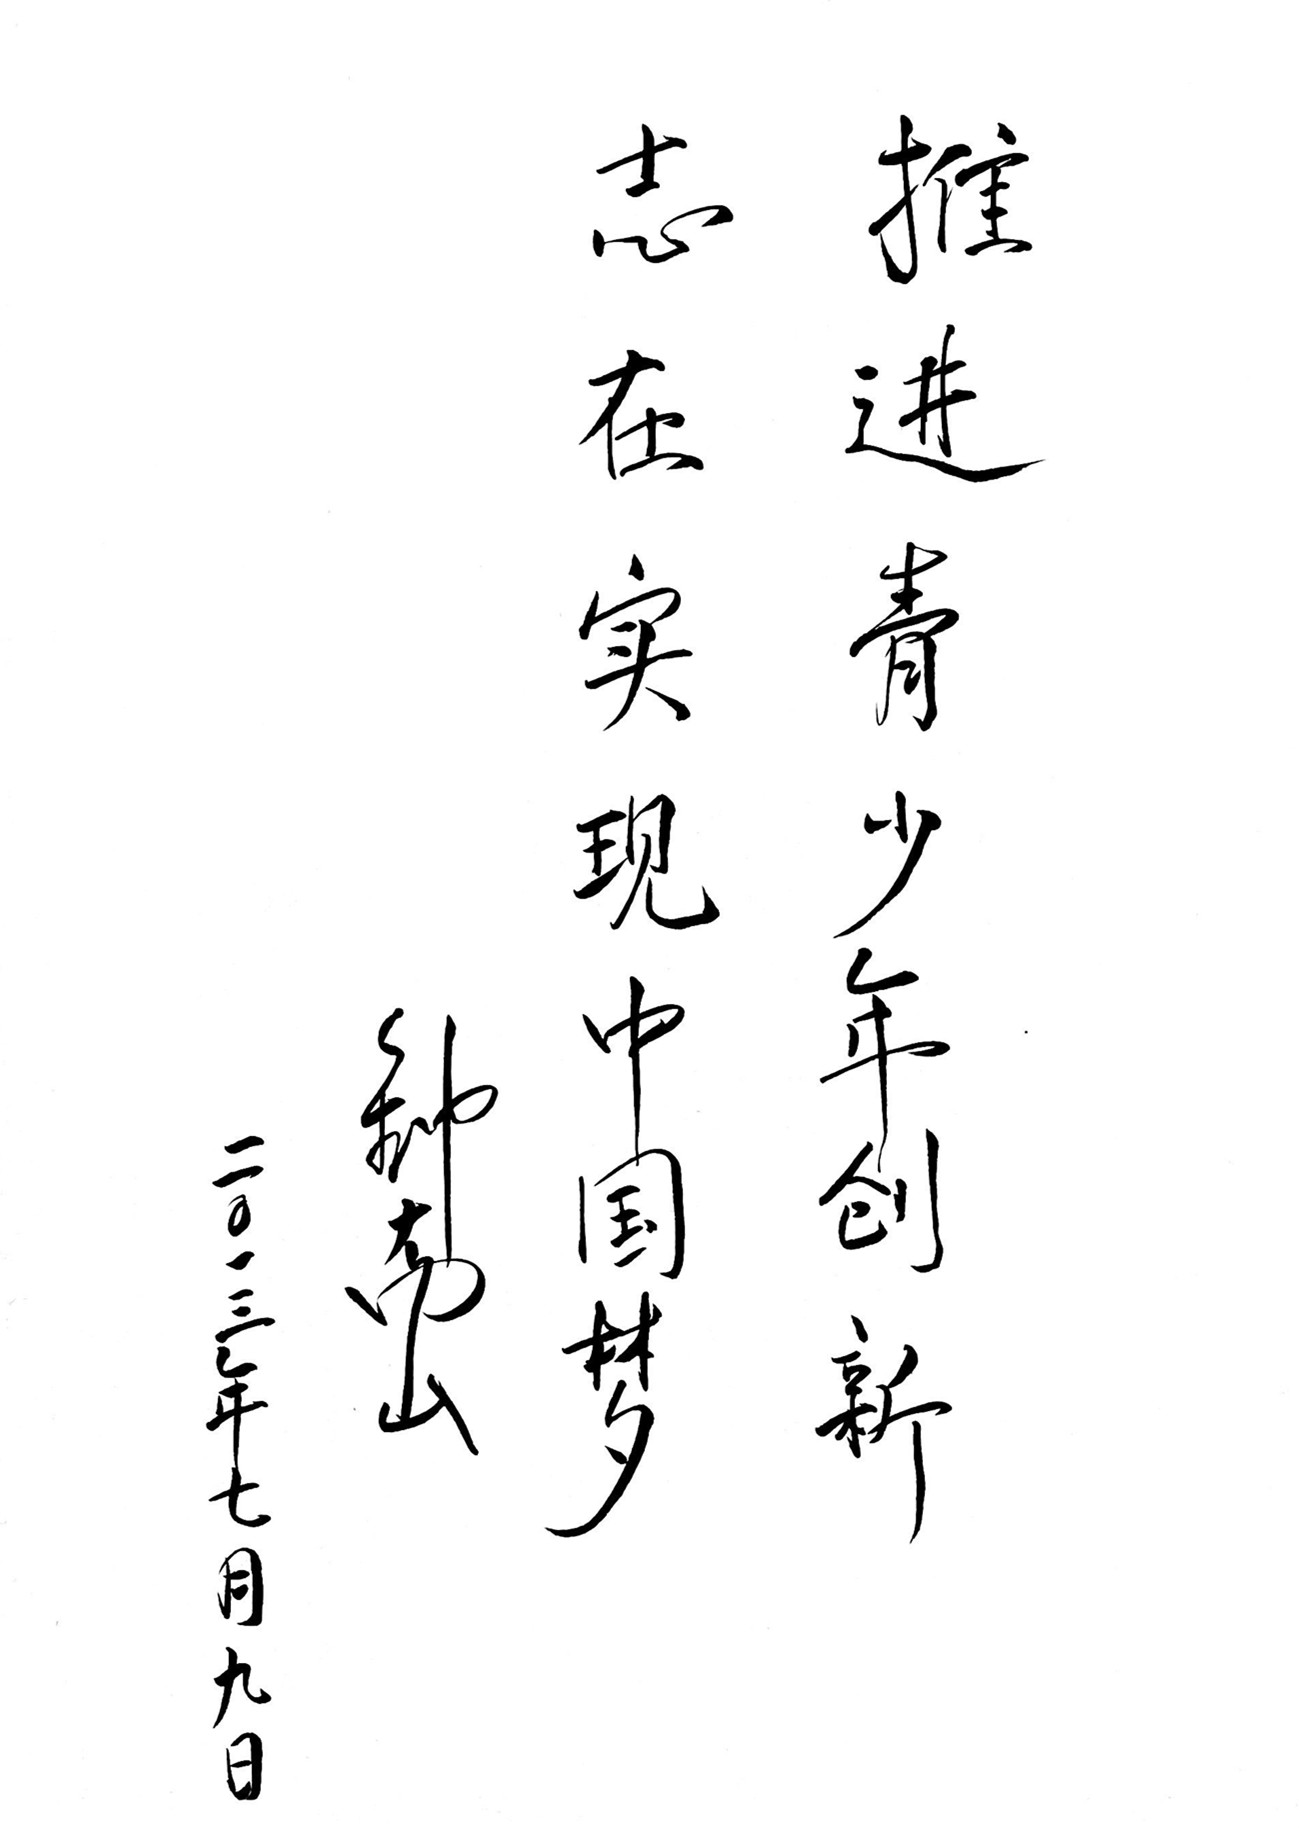 推进青少年创新
志在实现中国梦
钟南山
二〇一三年七月九日